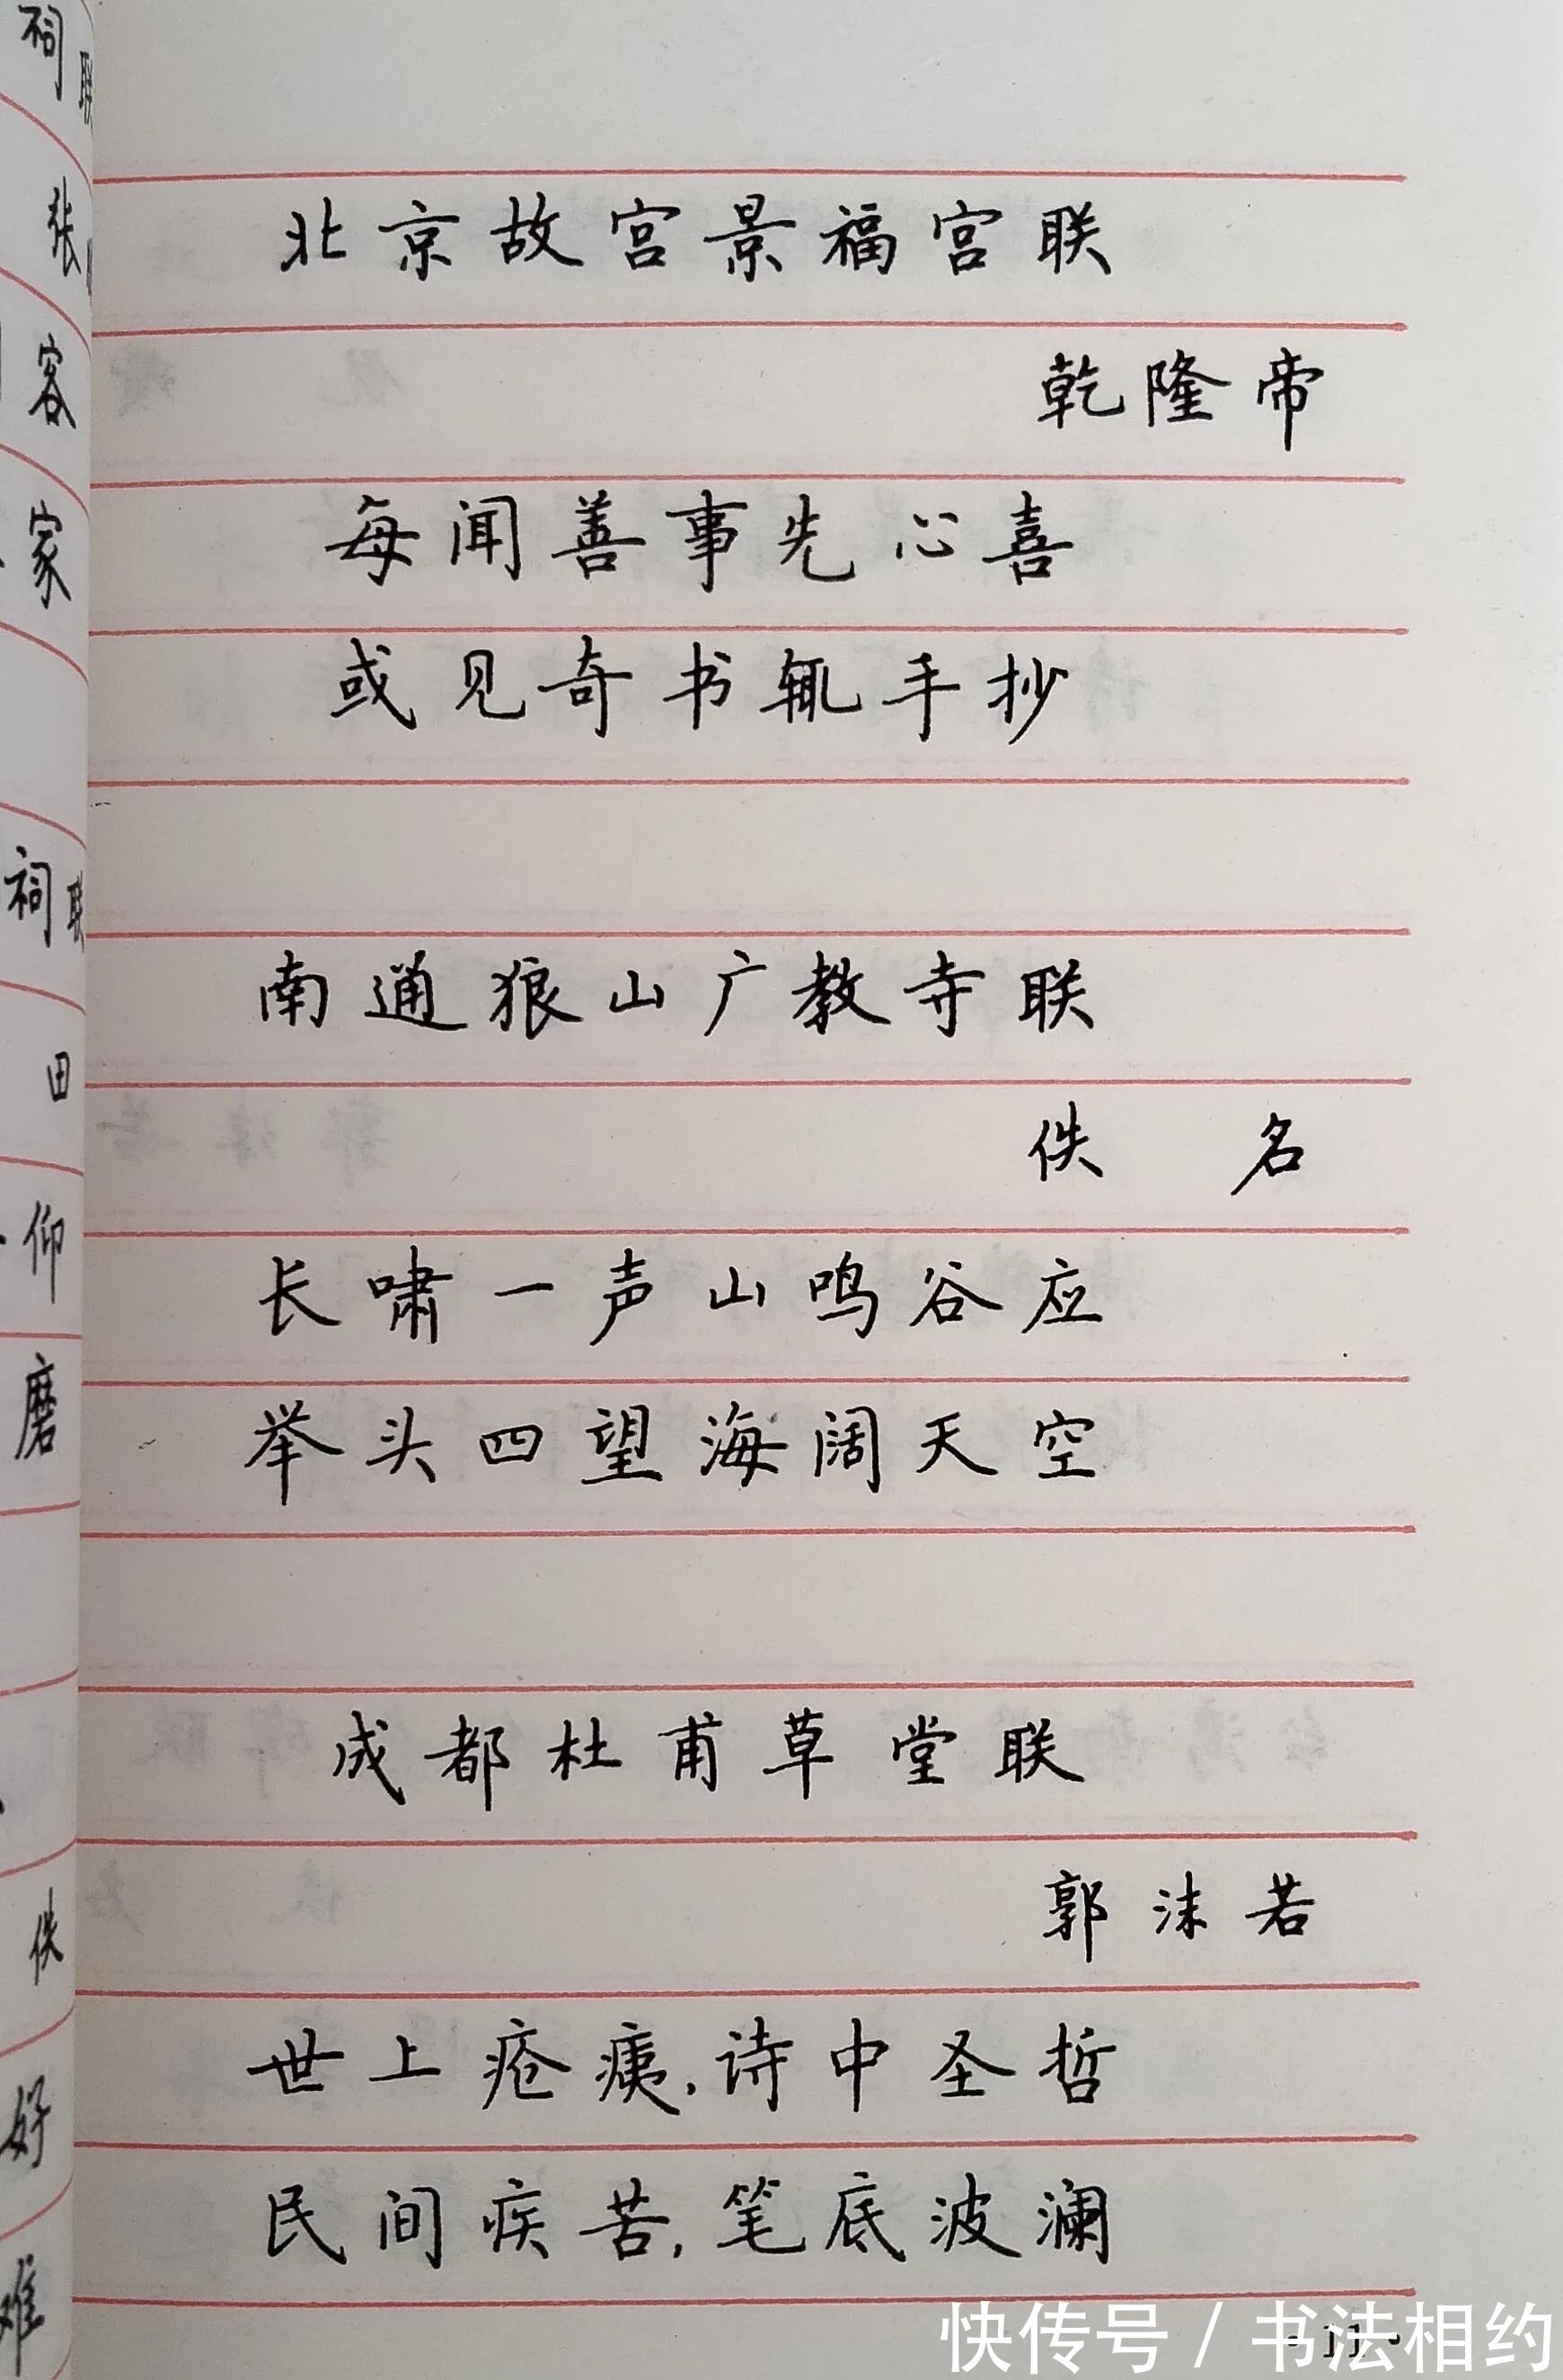 北京故宫景福宫联
乾隆帝
每闻善事先心喜
或见奇书辄手抄
南通狼山广教寺联
佚名
长啸一声山鸣谷应
举头四望海阔天空
成都杜甫草堂联
郭沫若
世上疮痍,诗中圣哲
民间疾苦,笔底波澜
·11·
快传号/书法相约
祠联
张
客
家
祠联
田
仰
磨
佚
好
难